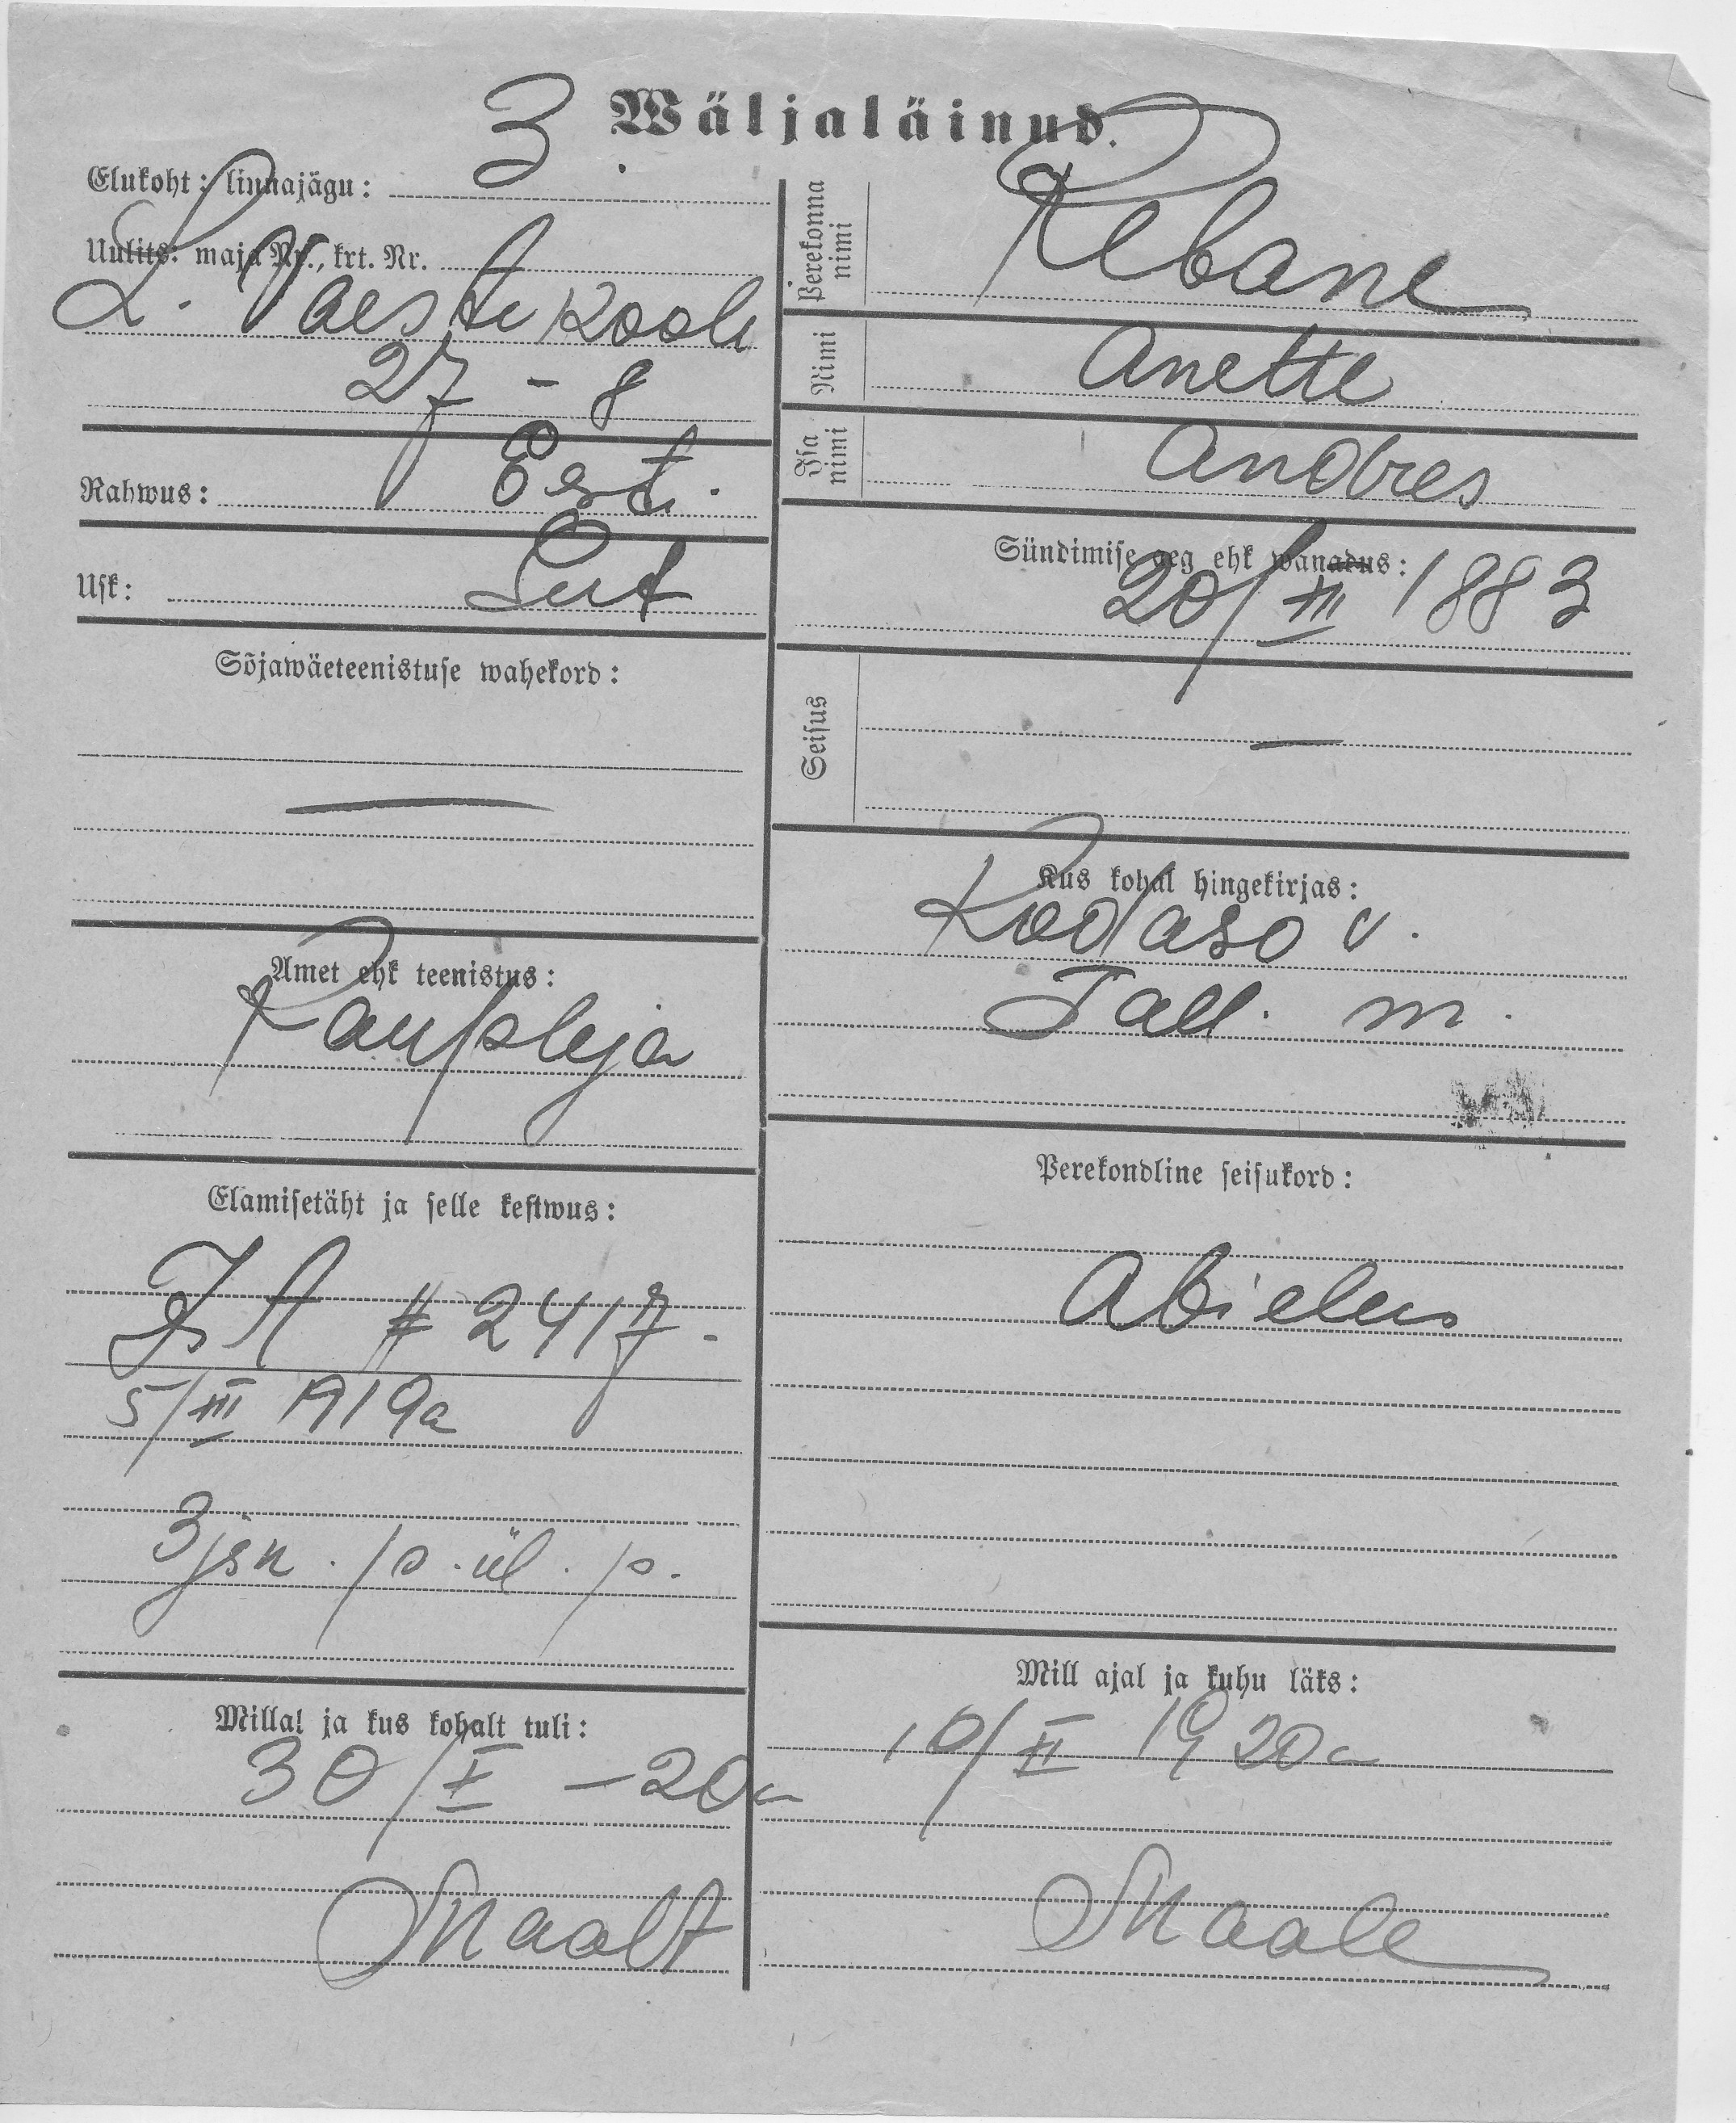 Wäljaläinud.
Elukoht: linnajägu: 3.
Uulits: maja Nr., krt. Nr.
L. Paeste Kooli
27 - 8
Rahwus: Est.
Usk: Lut
Sõjawäeteenistuse wahekord:
—
Amet ehk teenistus:
Kaupleja
Elamisetäht ja selle kestwus:
# 2417.
5/III 1919a
3 jsk. p. ül. p.
Millal ja kus kohalt tuli:
30/I -20a
Maalt
Perekonna nimi Rebane
Nimi Anette
Isa nimi Andres
Sündimise aeg ehk wanadus:
20/III 1883
Seisus —
Kus kohal hingekirjas:
Kodaso v.
Tall. m.
Perekondline seisukord:
Abielus
Mill ajal ja kuhu läks:
10/II 1920a
Maale